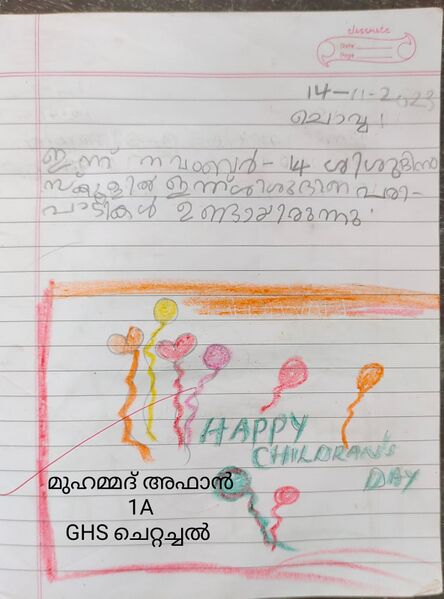 classmate
Date
Page
14-11-2023
ചൊവ്വ!
ഇന്ന് നവംബർ - 14 ശിശുദിനം
സ്കൂളിൽ ഇന്ന് ശിശുദിന പരി-
പാടികൾ ഉണ്ടായിരുന്നു
HAPPY
CHILDRAN'S
DAY
മുഹമ്മദ് അഫാൻ
1A
GHS ചെറ്റച്ചൽ